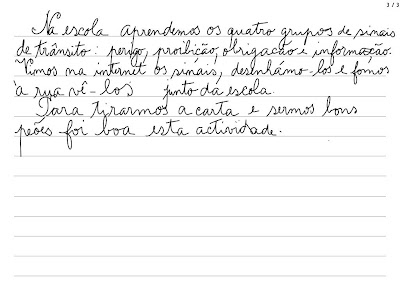 3 / 3
Na escola aprendemos os quatro grupos de sinais
de trânsito: perigo, proibição, obrigação e informação.
Vimos na internet os sinais, desenhámo-los e fomos
à rua vê-los junto da escola.
Para tirarmos a carta e sermos bons
peões foi boa esta actividade.